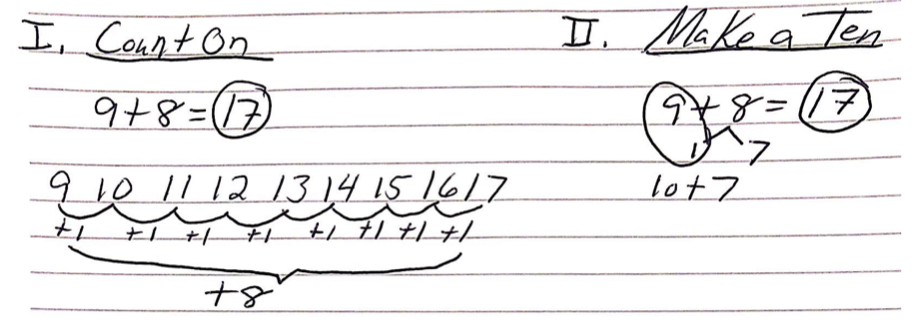 I. Count On
9+8=17
9 10 11 12 13 14 15 16 17
+1 +1 +1 +1 +1 +1 +1 +1
+8
II. Make a Ten
9+8=17
1 7
10+7